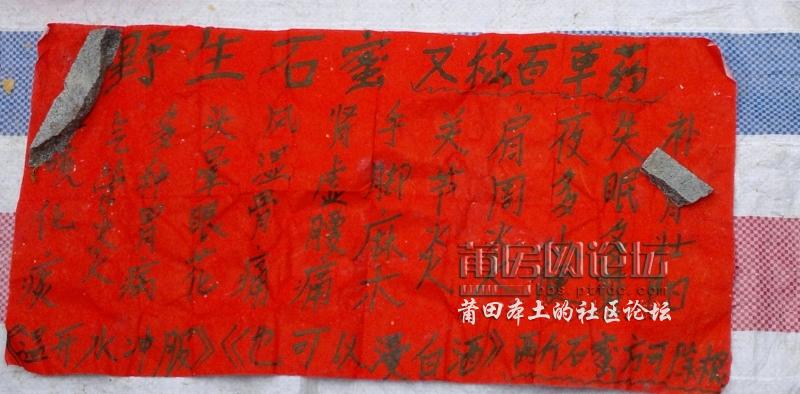 野生石蜜 又称百草药
补肾壮
失眠多
夜多小
肩周炎
关节炎
手脚麻木
肾虚腰痛
风湿骨痛
头晕眼花
多种胃病
气管炎
化痰
《温开水冲服》《也可以浸白酒》两斤石蜜方可除根
莆房网论坛
bbs.ptfdc.com
莆田本土的社区论坛